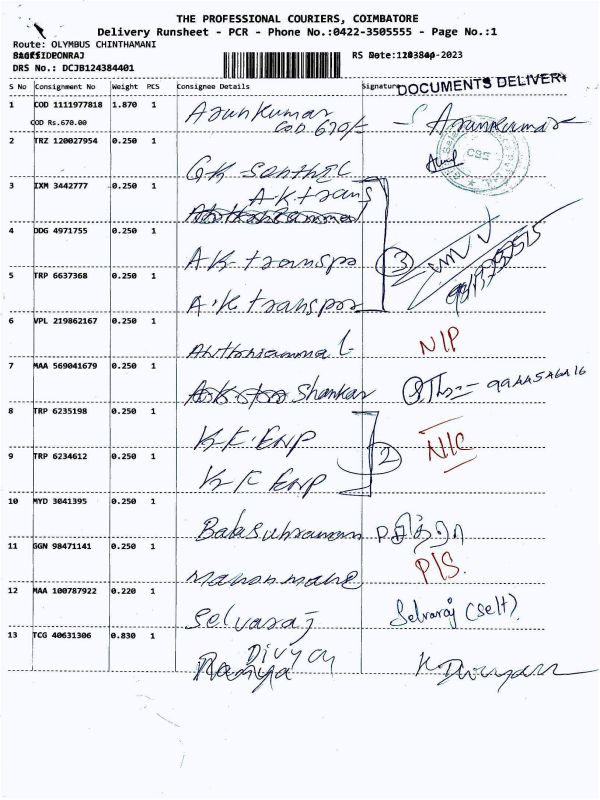 THE PROFESSIONAL COURIERS, COIMBATORE
Delivery Runsheet - PCR - Phone No.:0422-3505555 - Page No.:1
Route: OLYMBUS CHINTHAMANI
DRS No.: DCJB124384401
S No Consignment No Weight PCS Consignee Details Signature
DOCUMENTS DELIVERY
1 COD 1111977818 1.870 1 Arunkumar Arunkumar
COD Rs.670.00 COD 670/-
2 TRZ 120027954 0.250 1 G.K Senthil
3 IXM 3442777 0.250 1 A.K trans
4 DDG 4971755 0.250 1 A.K transpo 3
5 TRP 6637368 0.250 1 A.K transpor
6 VPL 219862167 0.250 1 N/P
7 MAA 569041679 0.250 1 Shankar
8 TRP 6235198 0.250 1 K.F. ENP 2 N/C
9 TRP 6234612 0.250 1 K F ENP
10 MYD 3041395 0.250 1 Balasubraman
11 GGN 98471141 0.250 1 P/S.
12 MAA 100787922 0.220 1 Selvaraj Selvaraj (Self)
13 TCG 40631306 0.830 1 Divya